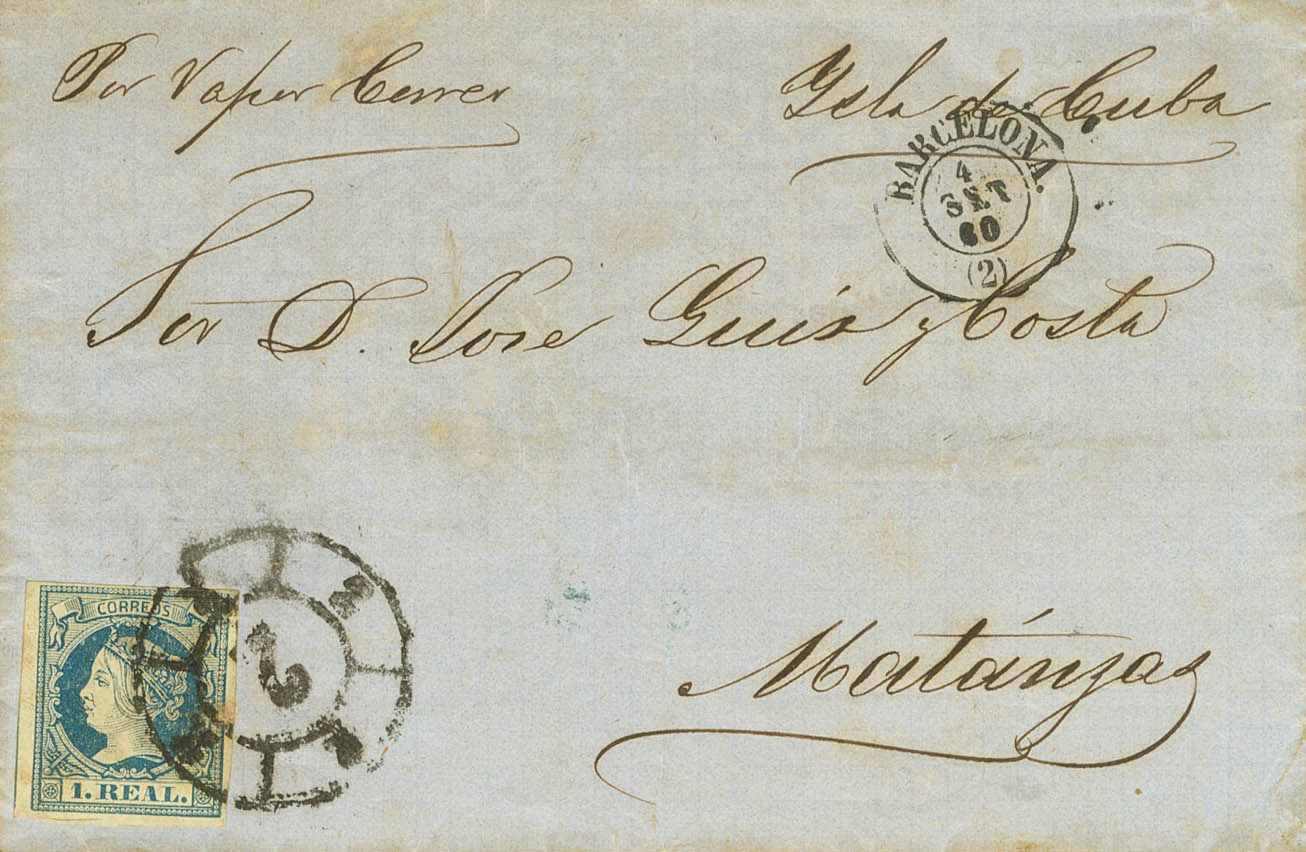 Por Vapor Correo
Ysla de Cuba
BARCELONA.
4
SET
60
(2)
Sor D. Jose Guix y Costa
CORREOS
1. REAL.
2
2
Matánzas